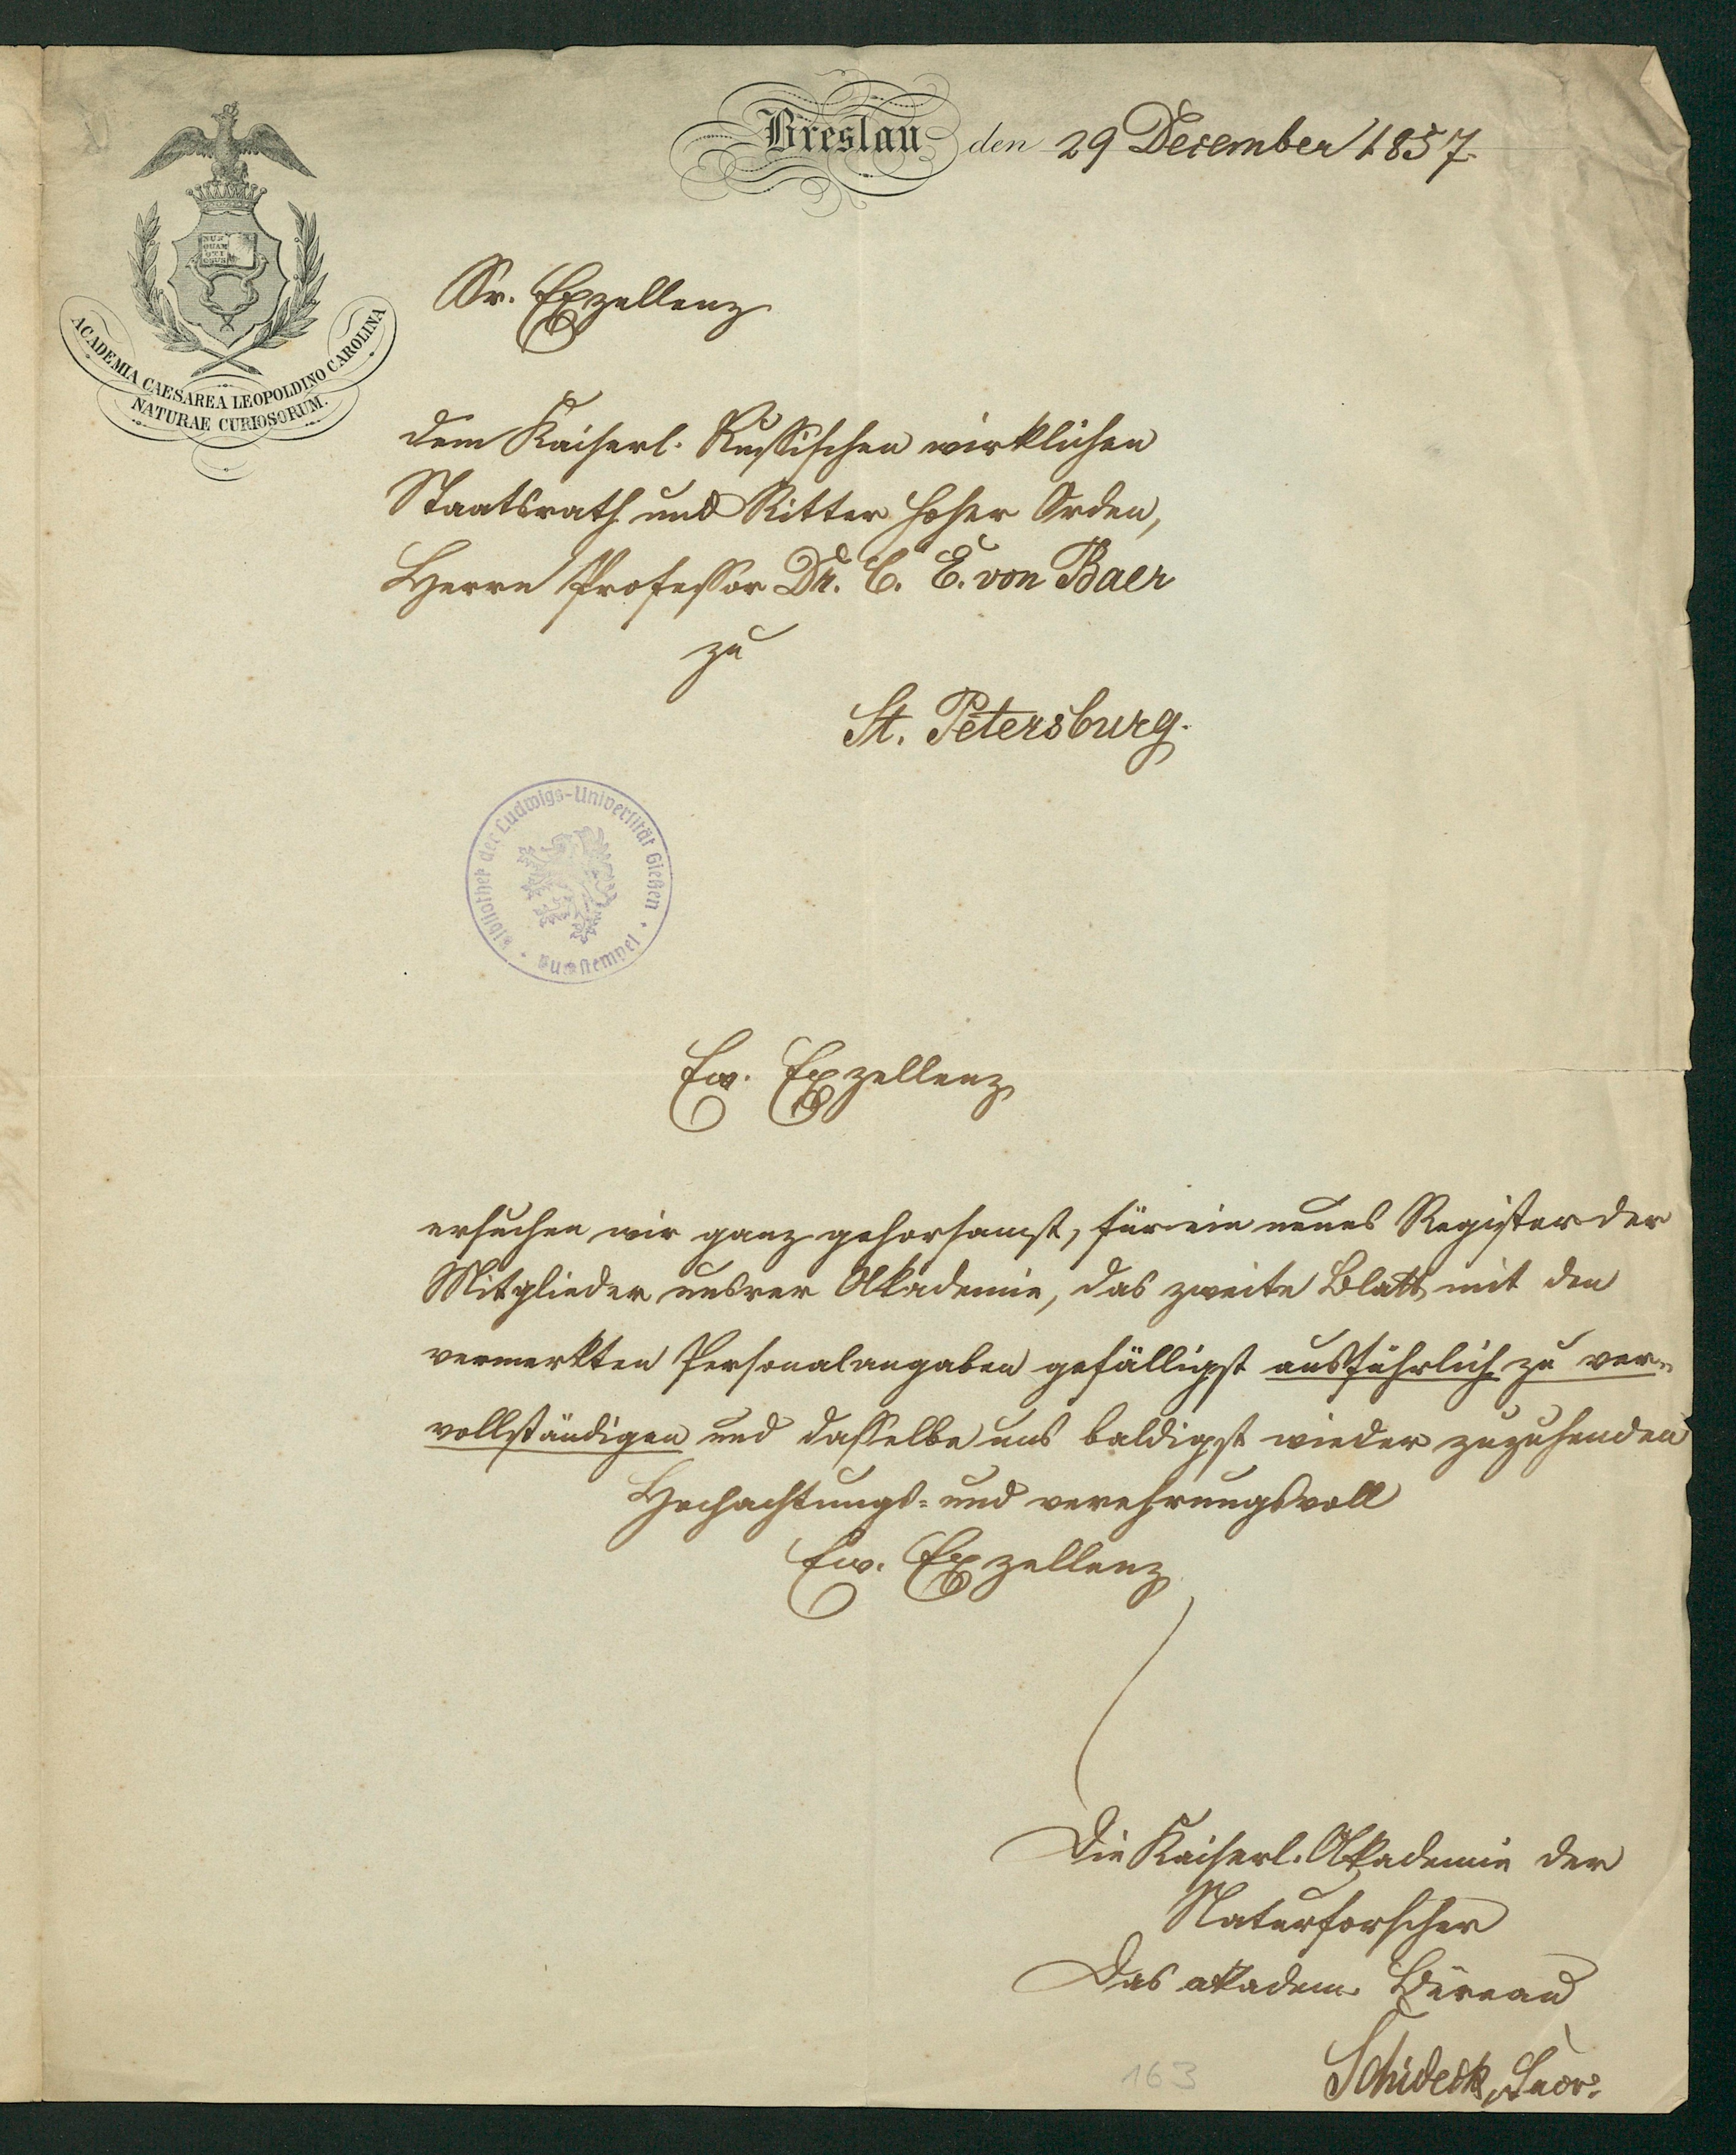 Breslau den 29 December 1857.
NUN
QUAM
OTI
OSUS
ACADEMIA CAESAREA LEOPOLDINO CAROLINA
NATURAE CURIOSORUM.
Sr. Exzellenz
dem Kaiserl. Russischen wirklichen
Staatsrath und Ritter hoher Orden,
Herrn Professor Dr. C. E. von Baer
zu
St. Petersburg.
Bibliothek der Ludwigs-Universität Gießen
Ew. Exzellenz
ersuchen wir ganz gehorsamst, für ein neues Register der
Mitglieder unsrer Akademie, das zweite Blatt mit den
vermerkten Personalangaben gefälligst ausführlich zu ver-
vollständigen und dasselbe uns baldigst wieder zuzusenden
Hochachtungs- und verehrungsvoll
Ew. Exzellenz
Die Kaiserl. Akademie der
Naturforscher
Das akadem. Büreau
163